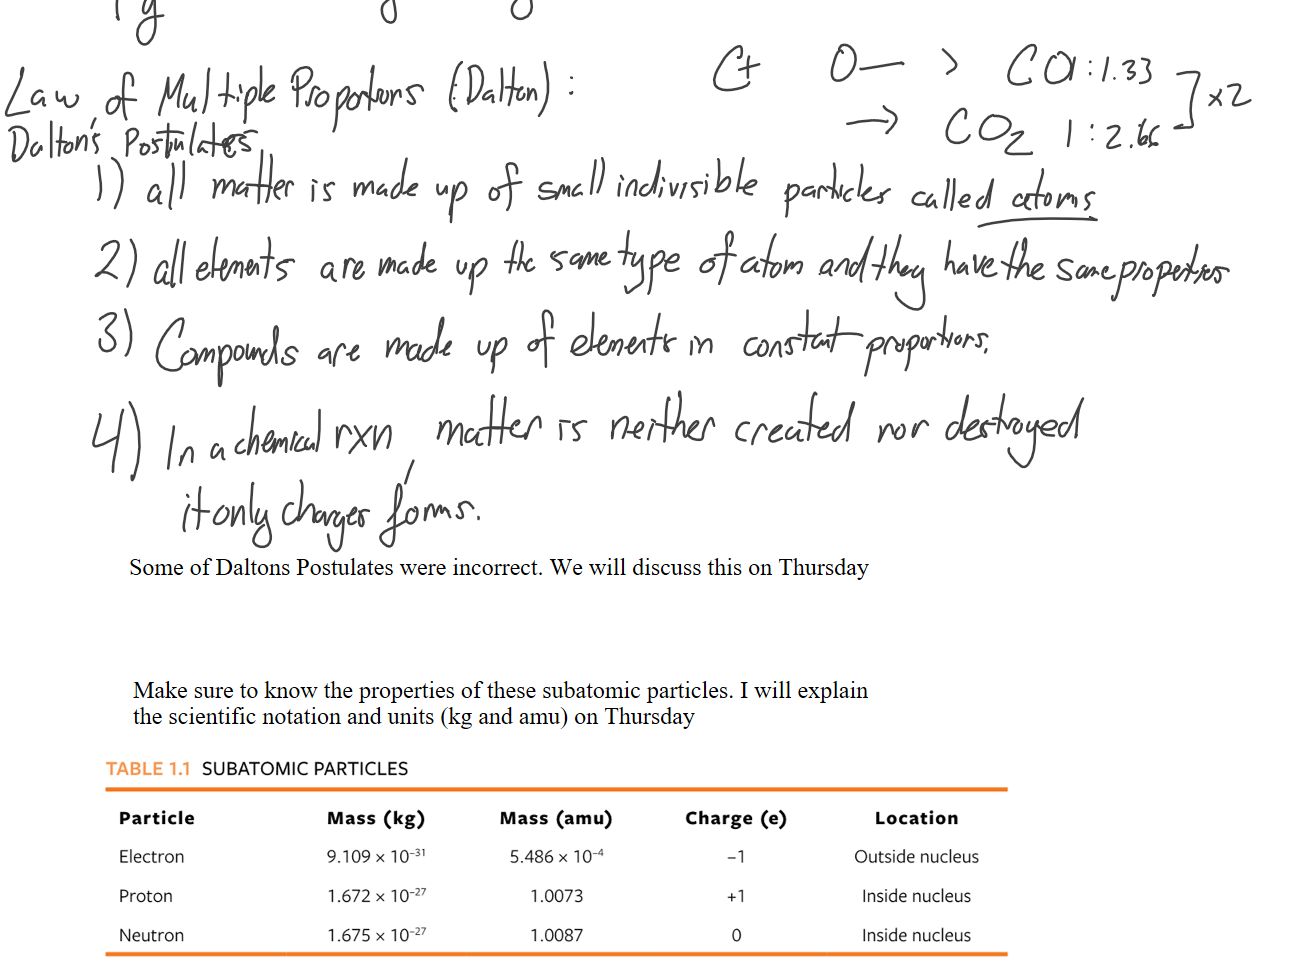 Law of Multiple Proportions (Dalton) :
C + O —> CO 1:1.33
→ CO2 1:2.66 ] x2
Dalton's Postulates
1) all matter is made up of small indivisible particles called atoms
2) all elements are made up the same type of atom and they have the same properties
3) Compounds are made up of elements in constant proportions.
4) In a chemical rxn, matter is neither created nor destroyed
it only changes forms.
Some of Daltons Postulates were incorrect. We will discuss this on Thursday
Make sure to know the properties of these subatomic particles. I will explain
the scientific notation and units (kg and amu) on Thursday
TABLE 1.1 SUBATOMIC PARTICLES
Particle Mass (kg) Mass (amu) Charge (e) Location
Electron 9.109 × 10⁻³¹ 5.486 × 10⁻⁴ −1 Outside nucleus
Proton 1.672 × 10⁻²⁷ 1.0073 +1 Inside nucleus
Neutron 1.675 × 10⁻²⁷ 1.0087 0 Inside nucleus